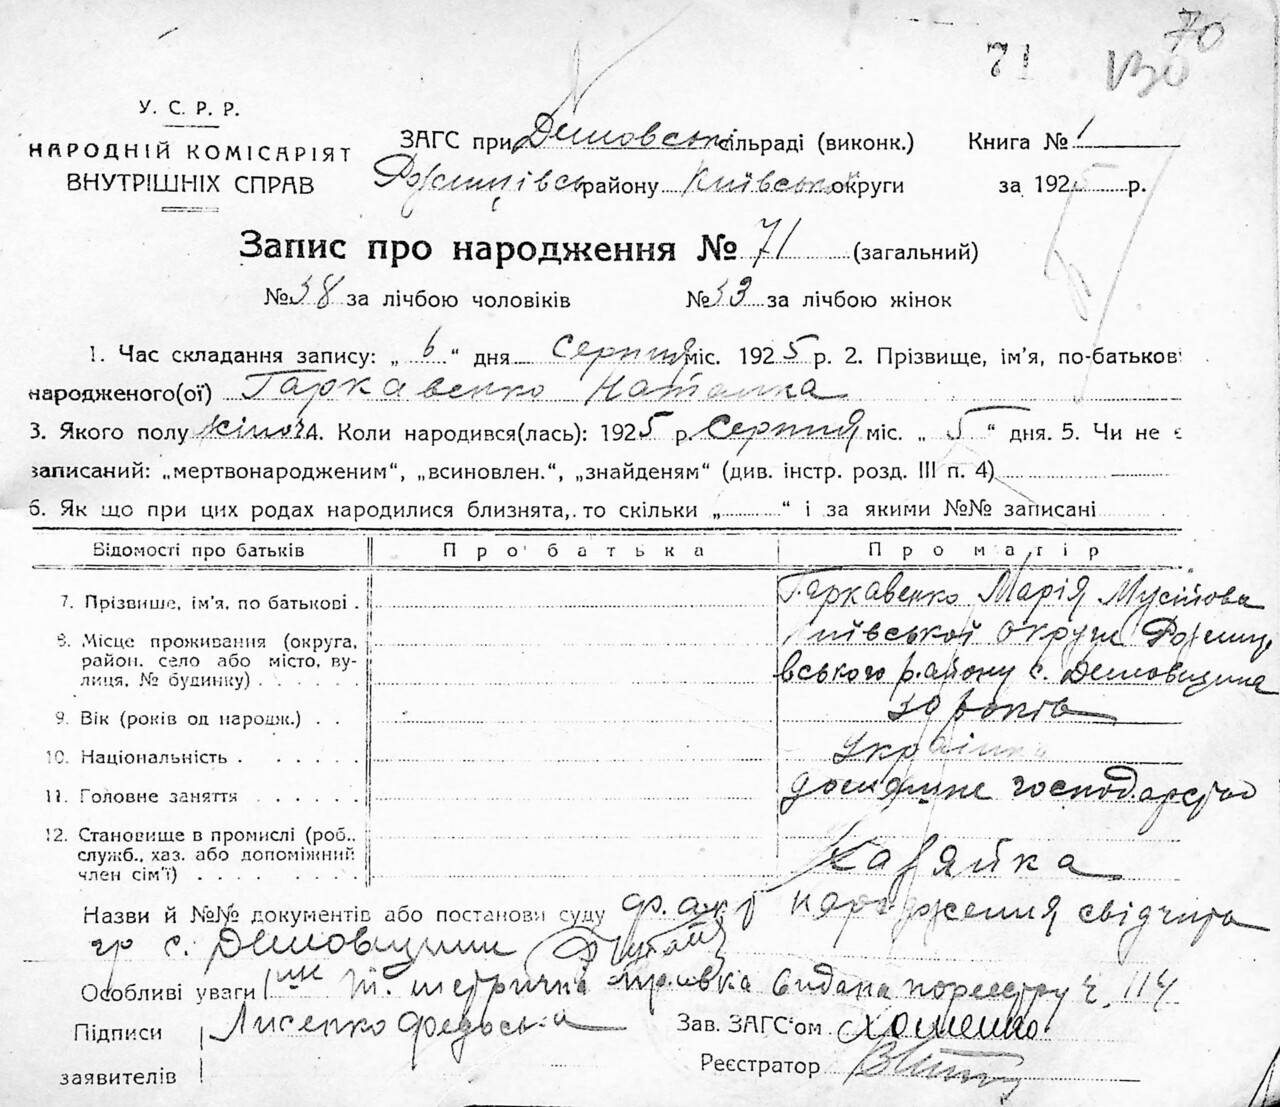 70
71 130
У. С. Р. Р.
НАРОДНІЙ КОМІСАРІЯТ
ВНУТРІШНІХ СПРАВ
ЗАГС при Демовській сільраді (виконк.) Книга № 1
Ржищівськ району Київської округи за 1925 р.
Запис про народження № 71 (загальний)
№ 38 за лічбою чоловіків № 33 за лічбою жінок
1. Час складання запису: „ 6 “ дня Серпня міс. 1925 р. 2. Прізвище, ім’я, по-батькові
народженого(ої) Гаркавенко Наталка
3. Якого полу жіноч 4. Коли народився(лась): 1925 р. Серпня міс. „ 5 “ дня. 5. Чи не є
записаний: „мертвонародженим“, „всиновлен.“, „знайденям“ (див. інстр. розд. III п. 4)
6. Як що при цих родах народилися близнята, то скільки „ “ і за якими №№ записані
Відомості про батьків Про батька Про матір
7. Прізвище, ім’я, по батькові . Гаркавенко Марія Мусіївна
8. Місце проживання (округа, Київської округи Ржищі
район, село або місто, ву-
лиця, № будинку) . . . . . . вського району с. Демовщина
9. Вік (років од народж.) . . 30 років
10. Національність . . . . . . Українка
11. Головне заняття . . . . . . домашнє господарство
12. Становище в промислі (роб.,
служб., хаз. або допоміжний Хазяйка
член сім’ї) . . . . . . . .
Назви й №№ документів або постанови суду факт народження свідчить
гр с. Демовщини
Особливі уваги метрична виправка видана по реєстру ч. 114
Підписи Лисенко Федоська Зав. ЗАГС’ом Хоменко
заявителів Реєстратор